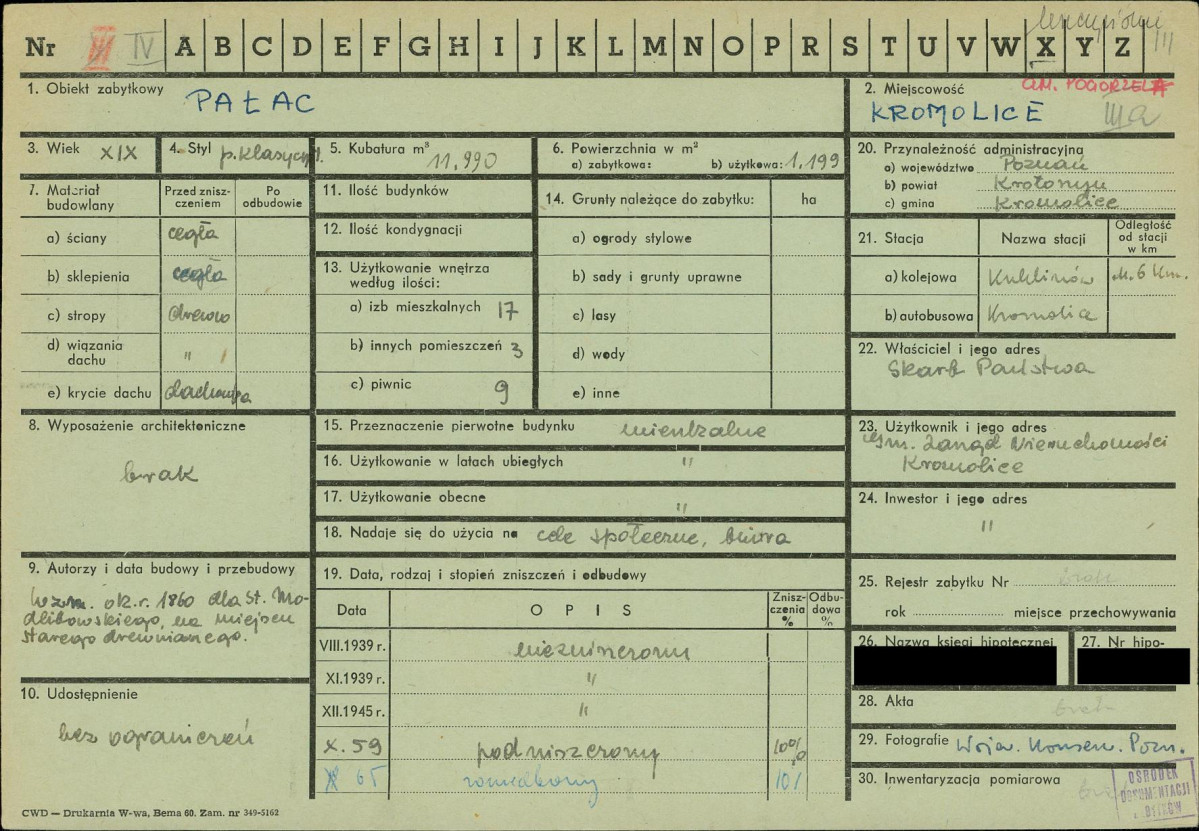 Nr IV A B C D E F G H I J K L M N O P R S T U V W X Y Z III
1. Obiekt zabytkowy PAŁAC
2. Miejscowość GM. POGORZELA
KROMOLICE IIIa
3. Wiek XIX
4. Styl p. klasycyst.
5. Kubatura m³ 11.990
6. Powierzchnia w m²
a) zabytkowa: b) użytkowa: 1.199
20. Przynależność administracyjna
a) województwo Poznań
b) powiat Krotoszyn
c) gmina Kromolice
7. Materiał budowlany
Przed zniszczeniem
Po odbudowie
a) ściany cegła
b) sklepienia cegła
c) stropy drewno
d) wiązania dachu "
e) krycie dachu dachówka
11. Ilość budynków
12. Ilość kondygnacji
13. Użytkowanie wnętrza
według ilości:
a) izb mieszkalnych 17
b) innych pomieszczeń 3
c) piwnic 9
14. Grunty należące do zabytku: ha
a) ogrody stylowe
b) sady i grunty uprawne
c) lasy
d) wody
e) inne
21. Stacja Nazwa stacji Odległość od stacji w km
a) kolejowa Kuklinów 6 km.
b) autobusowa Kromolice
22. Właściciel i jego adres
Skarb Państwa
8. Wyposażenie architektoniczne
brak
15. Przeznaczenie pierwotne budynku mieszkalne
16. Użytkowanie w latach ubiegłych "
17. Użytkowanie obecne "
18. Nadaje się do użycia na cele społeczne, biura
23. Użytkownik i jego adres
Gm. Zarząd Nieruchomości
Kromolice
24. Inwestor i jego adres
"
9. Autorzy i data budowy i przebudowy
Wzm. ok. r. 1860 dla St. Mo-
dlibowskiego, na miejscu
starego drewnianego.
10. Udostępnienie
bez ograniczeń
19. Data, rodzaj i stopień zniszczeń i odbudowy
Data OPIS Zniszczenia % Odbudowa %
VIII.1939 r. niezniszczony
XI.1939 r. "
XII.1945 r. "
X. 59 podniszczony 10%
65 zaniedbany 10%
25. Rejestr zabytku Nr brak
rok miejsce przechowywania
26. Nazwa księgi hipotecznej
27. Nr hipo-
28. Akta brak
29. Fotografie Wojew. Konserw. Pozn.
30. Inwentaryzacja pomiarowa brak
OŚRODEK
DOKUMENTACJI
CWD — Drukarnia W-wa, Bema 60. Zam. nr 349-5162